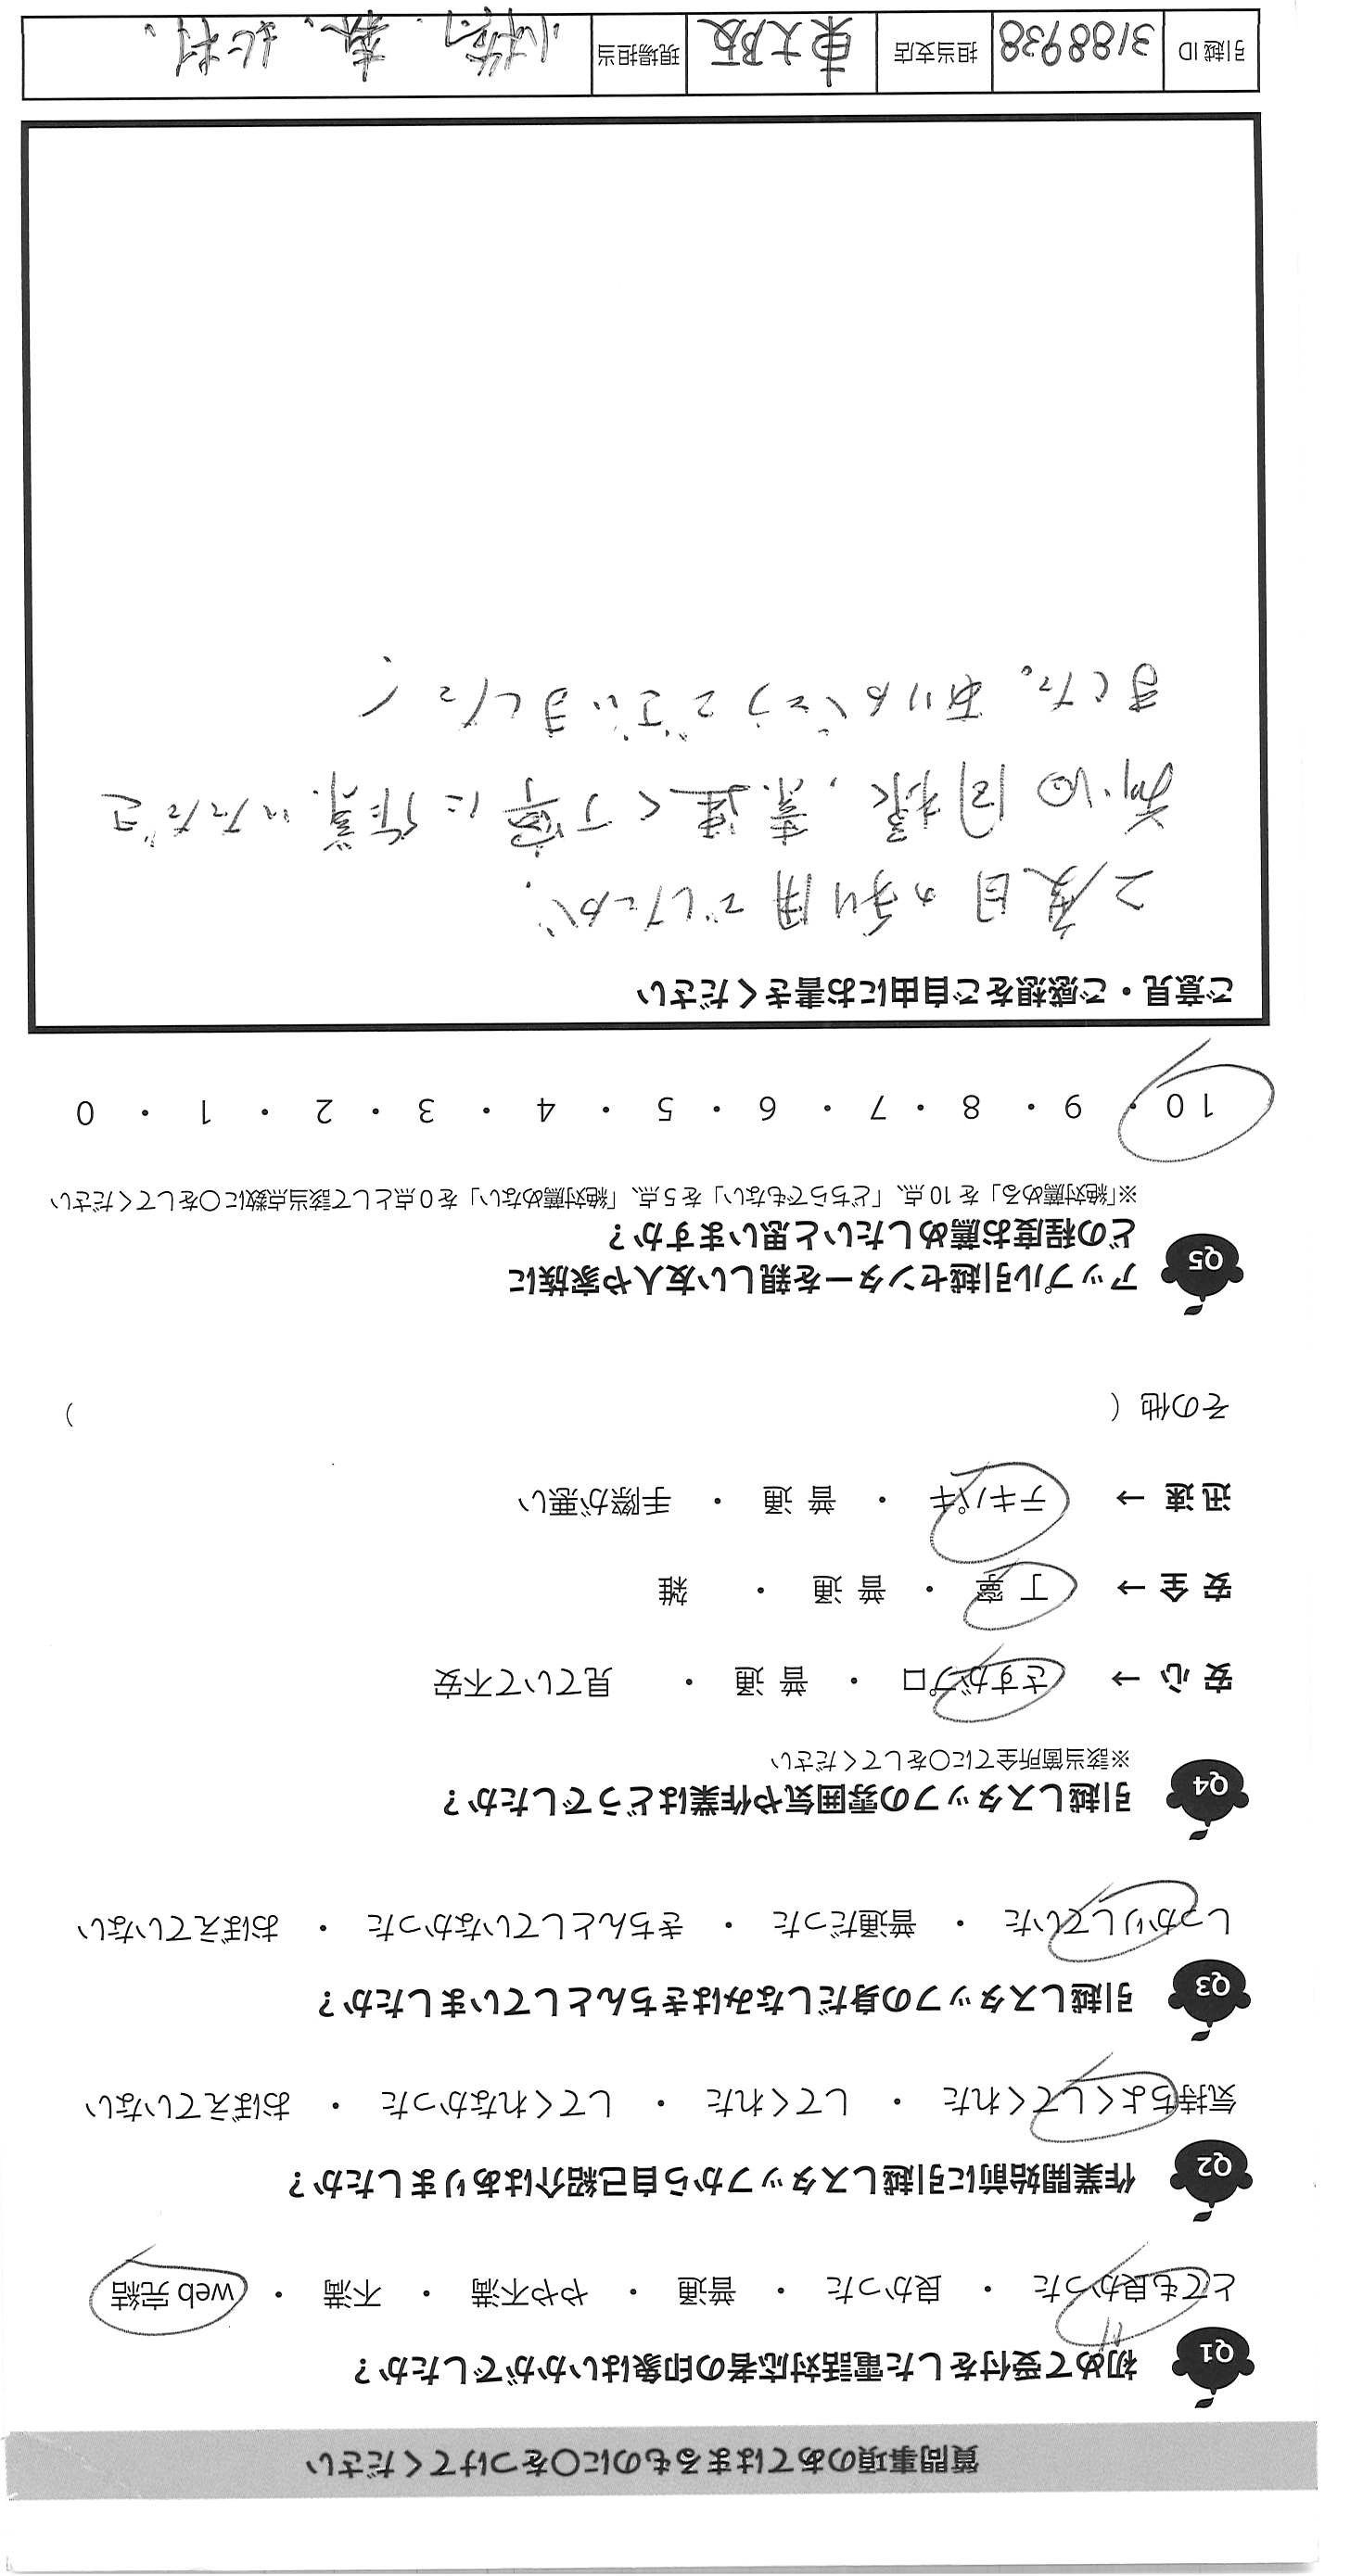 質問事項のあてはまるものに○をつけてください
Q1 初めて受付をした電話対応者の印象はいかがでしたか？
とても良かった ・ 良かった ・ 普通 ・ やや不満 ・ 不満 ・ web 完結
Q2 作業開始前に引越しスタッフから自己紹介はありましたか？
気持ちよくしてくれた ・ してくれた ・ してくれなかった ・ おぼえていない
Q3 引越しスタッフの身だしなみはきちんとしていましたか？
しっかりしていた ・ 普通だった ・ きちんとしていなかった ・ おぼえていない
Q4 引越しスタッフの雰囲気や作業はどうでしたか？
※該当箇所全てに○をしてください
安 心 → さすがプロ ・ 普 通 ・ 見ていて不安
安 全 → 丁 寧 ・ 普 通 ・ 雑
迅 速 → テキパキ ・ 普 通 ・ 手際が悪い
その他（ ）
Q5 アップル引越センターを親しい友人や家族に
どの程度お薦めしたいと思いますか？
※「絶対薦める」を 10 点、「どちらでもない」を 5 点、「絶対薦めない」を 0 点として該当点数に○をしてください
10 ・ 9 ・ 8 ・ 7 ・ 6 ・ 5 ・ 4 ・ 3 ・ 2 ・ 1 ・ 0
ご意見・ご感想をご自由にお書きください
2度目の利用でしたが、
前回同様、素速く丁寧に作業いただき
ました。ありがとうございました！
引越 ID 3188938 担当支店 東大阪 現場担当 小橋、森、北村、